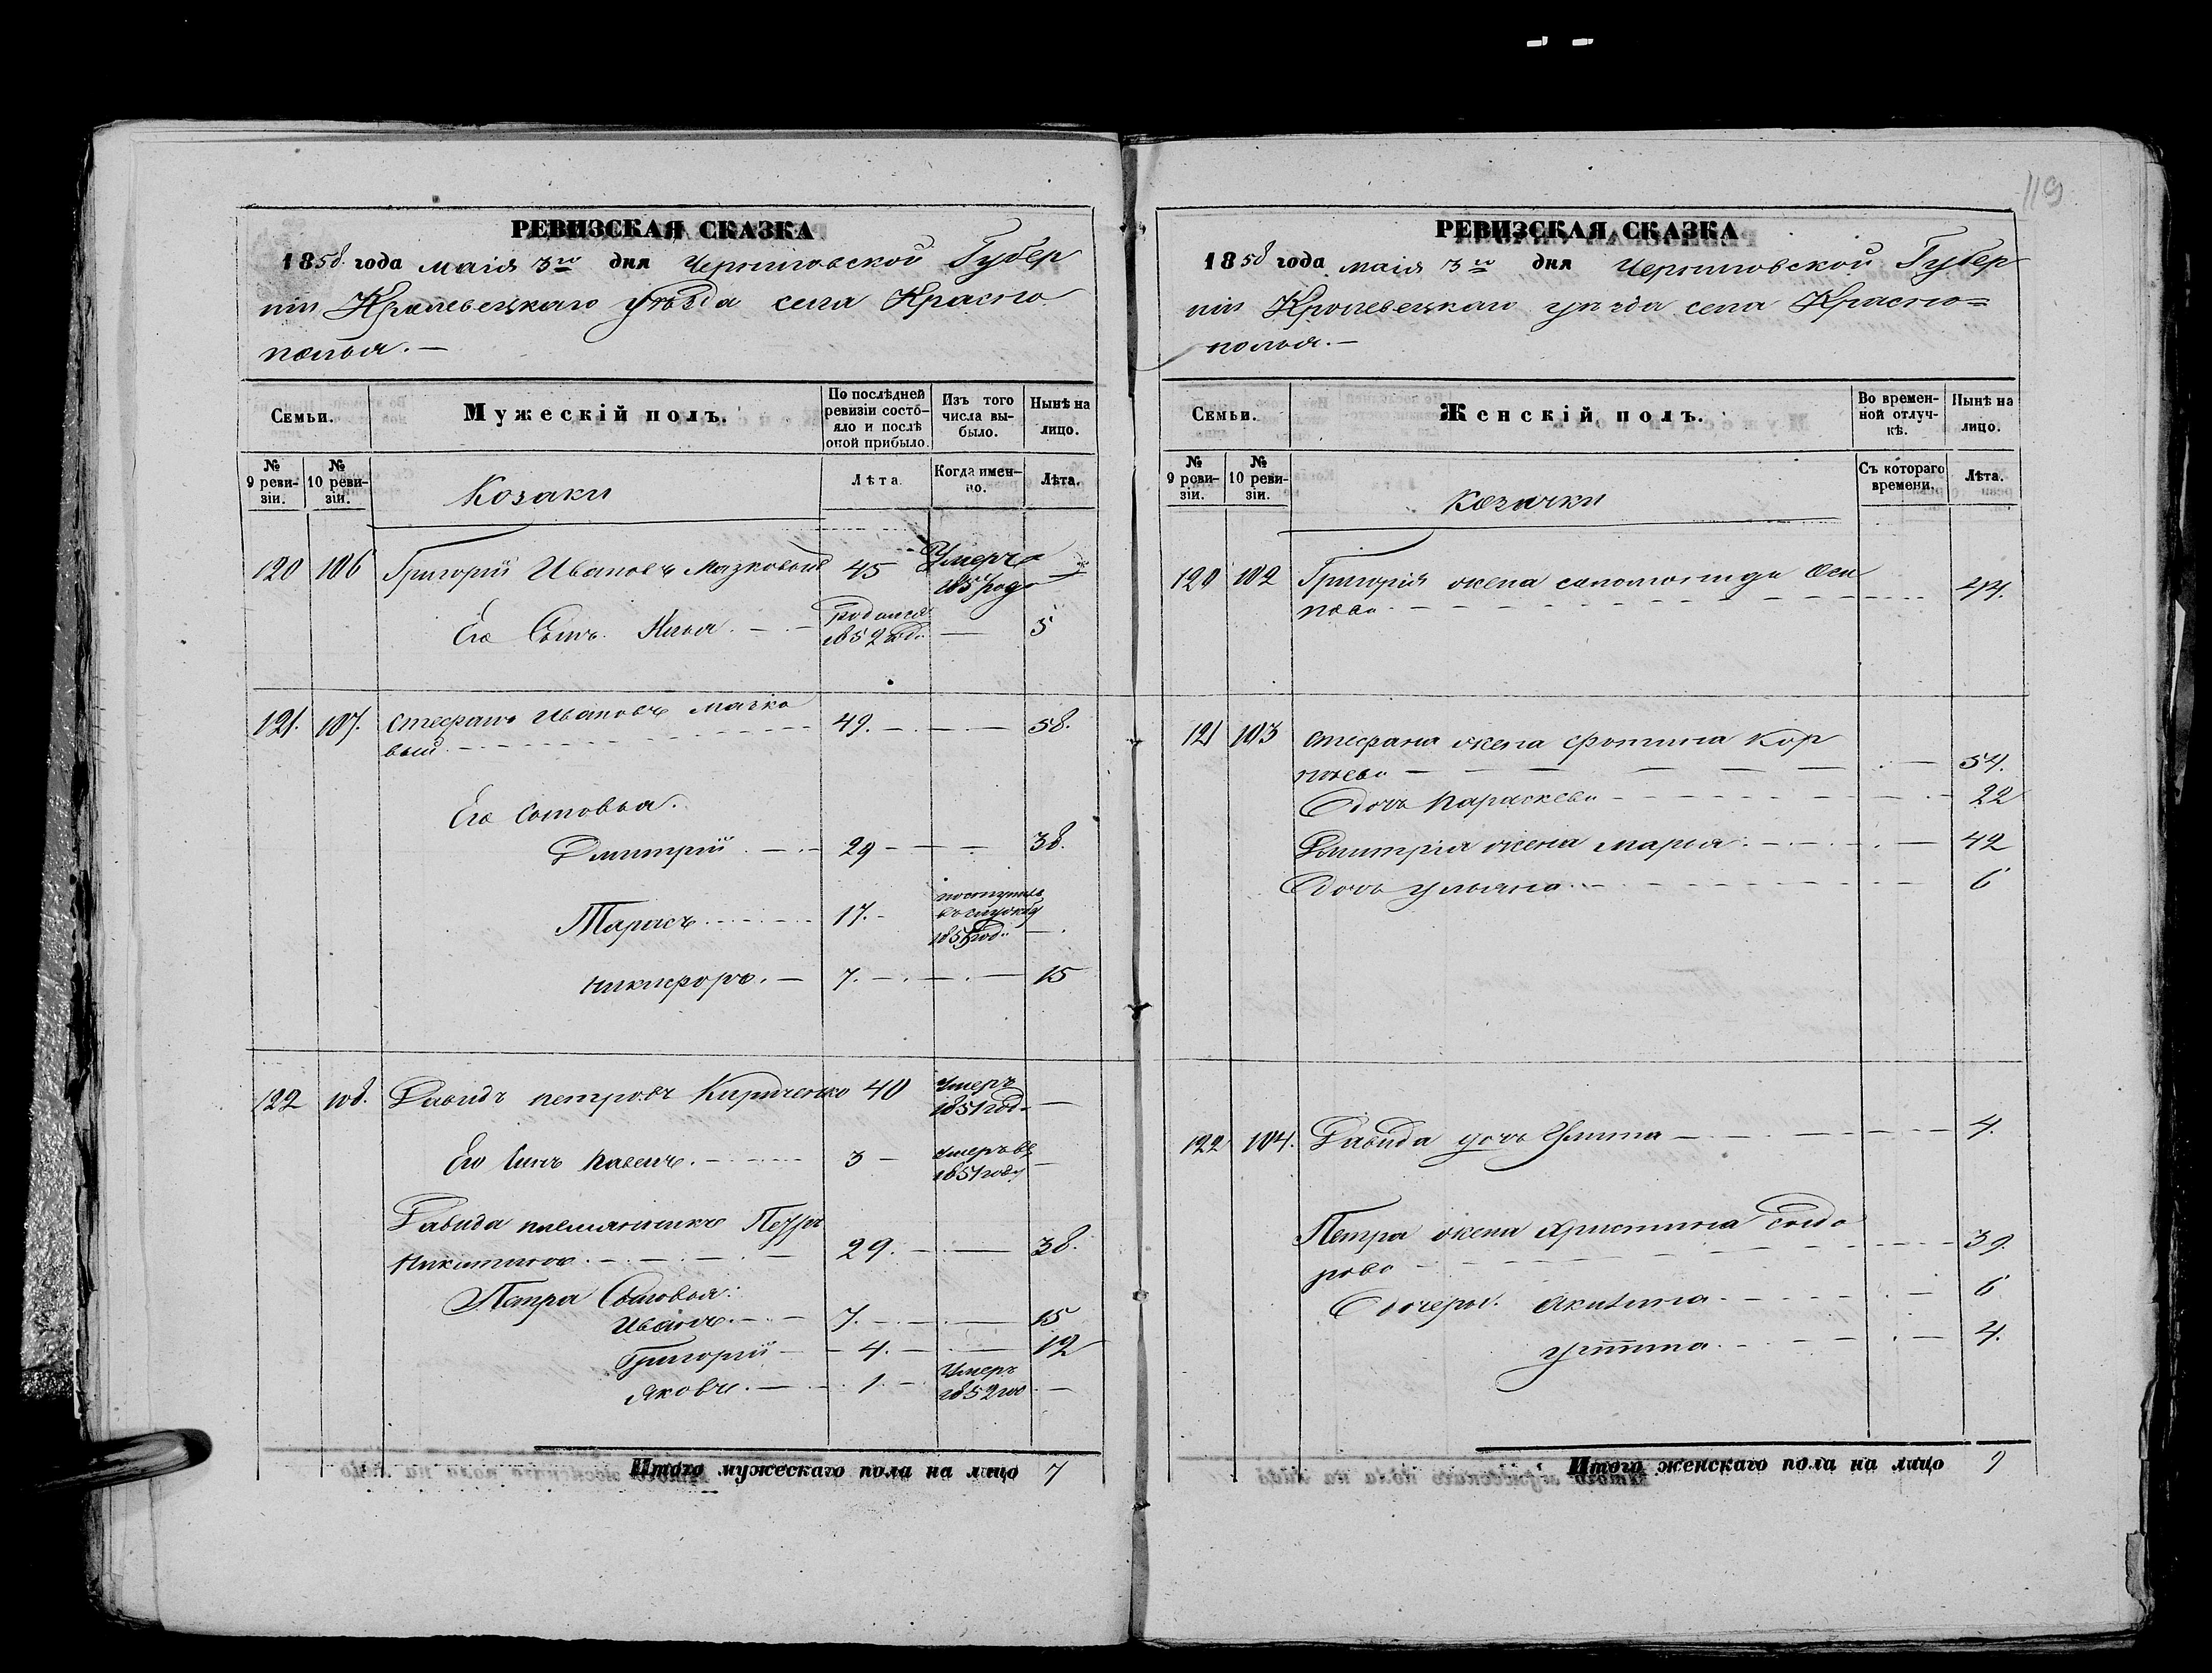 119
РЕВИЗСКАЯ СКАЗКА
1858 года маія 3го дня Черниговской Губер
ніи Кролевецкаго уѣзда села Красно
полья. —
Семьи.
Мужескій полъ.
По послѣдней ревизіи состо-
яло и послѣ
оной прибыло.
Изъ того
числа вы-
было.
Нынѣ на
лицо.
№
9 реви-
зіи.
№
10 реви-
зіи.
Козаки
Лѣта.
Когда имен-
но.
Лѣта.
120 106 Григорій Ивановъ Мазковый 45 Умеръ
1857 году —
Его Сынъ Илья родился
1852 год. — 5
121. 107. Стефанъ Ивановъ Мачко
вый 49. — 58.
Его Сыновья.
Дмитрій 29 — 38.
Тарасъ 17. поступилъ
въ службу
1855 год. —
Никифоръ. — 7. — 15
122 108. Давидъ Петровъ Кириченко 40 Умеръ
1851 год. —
Его Сынъ Павелъ. 3 — Умеръ въ
1851 году —
Давида племянникъ Петръ
Никитинъ 29. — 38.
Петра Сыновья:
Иванъ. 7. — 15
Григорій — 4. — 12
Яковъ. — 1. Умеръ
1852 го —
Итого мужескаго пола на лицо 7
РЕВИЗСКАЯ СКАЗКА
1858 года маія 3го дня Черниговской Губер
ніи Кролевецкаго уѣзда села Красно=
полья. —
Семьи.
Женскій полъ.
Во времен-
ной отлуч-
кѣ.
Нынѣ на
лицо.
№
9 реви-
зіи.
№
10 реви-
зіи.
Козачки
Съ котораго
времени.
Лѣта.
120 102 Григорія жена Саломонида Оси
пова 44.
121 103 Стефана жена Фотина Кор
нѣева — 54.
Дочь Параскева 22
Дмитрія жена Марья 42
Дочь Ульяна 6
122 104. Давида дочь Устина 4.
Петра жена Христина Сидо
рова 39.
Дочеры. Акилина 6
Устина 4.
Итого женскаго пола на лицо 9